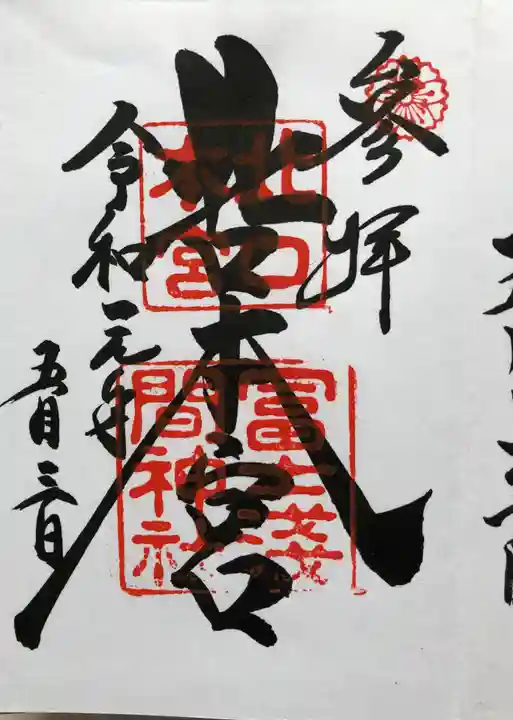 参拝
北口本宮
北口
本宮
富士淺
間神社
令和元年
五月三日